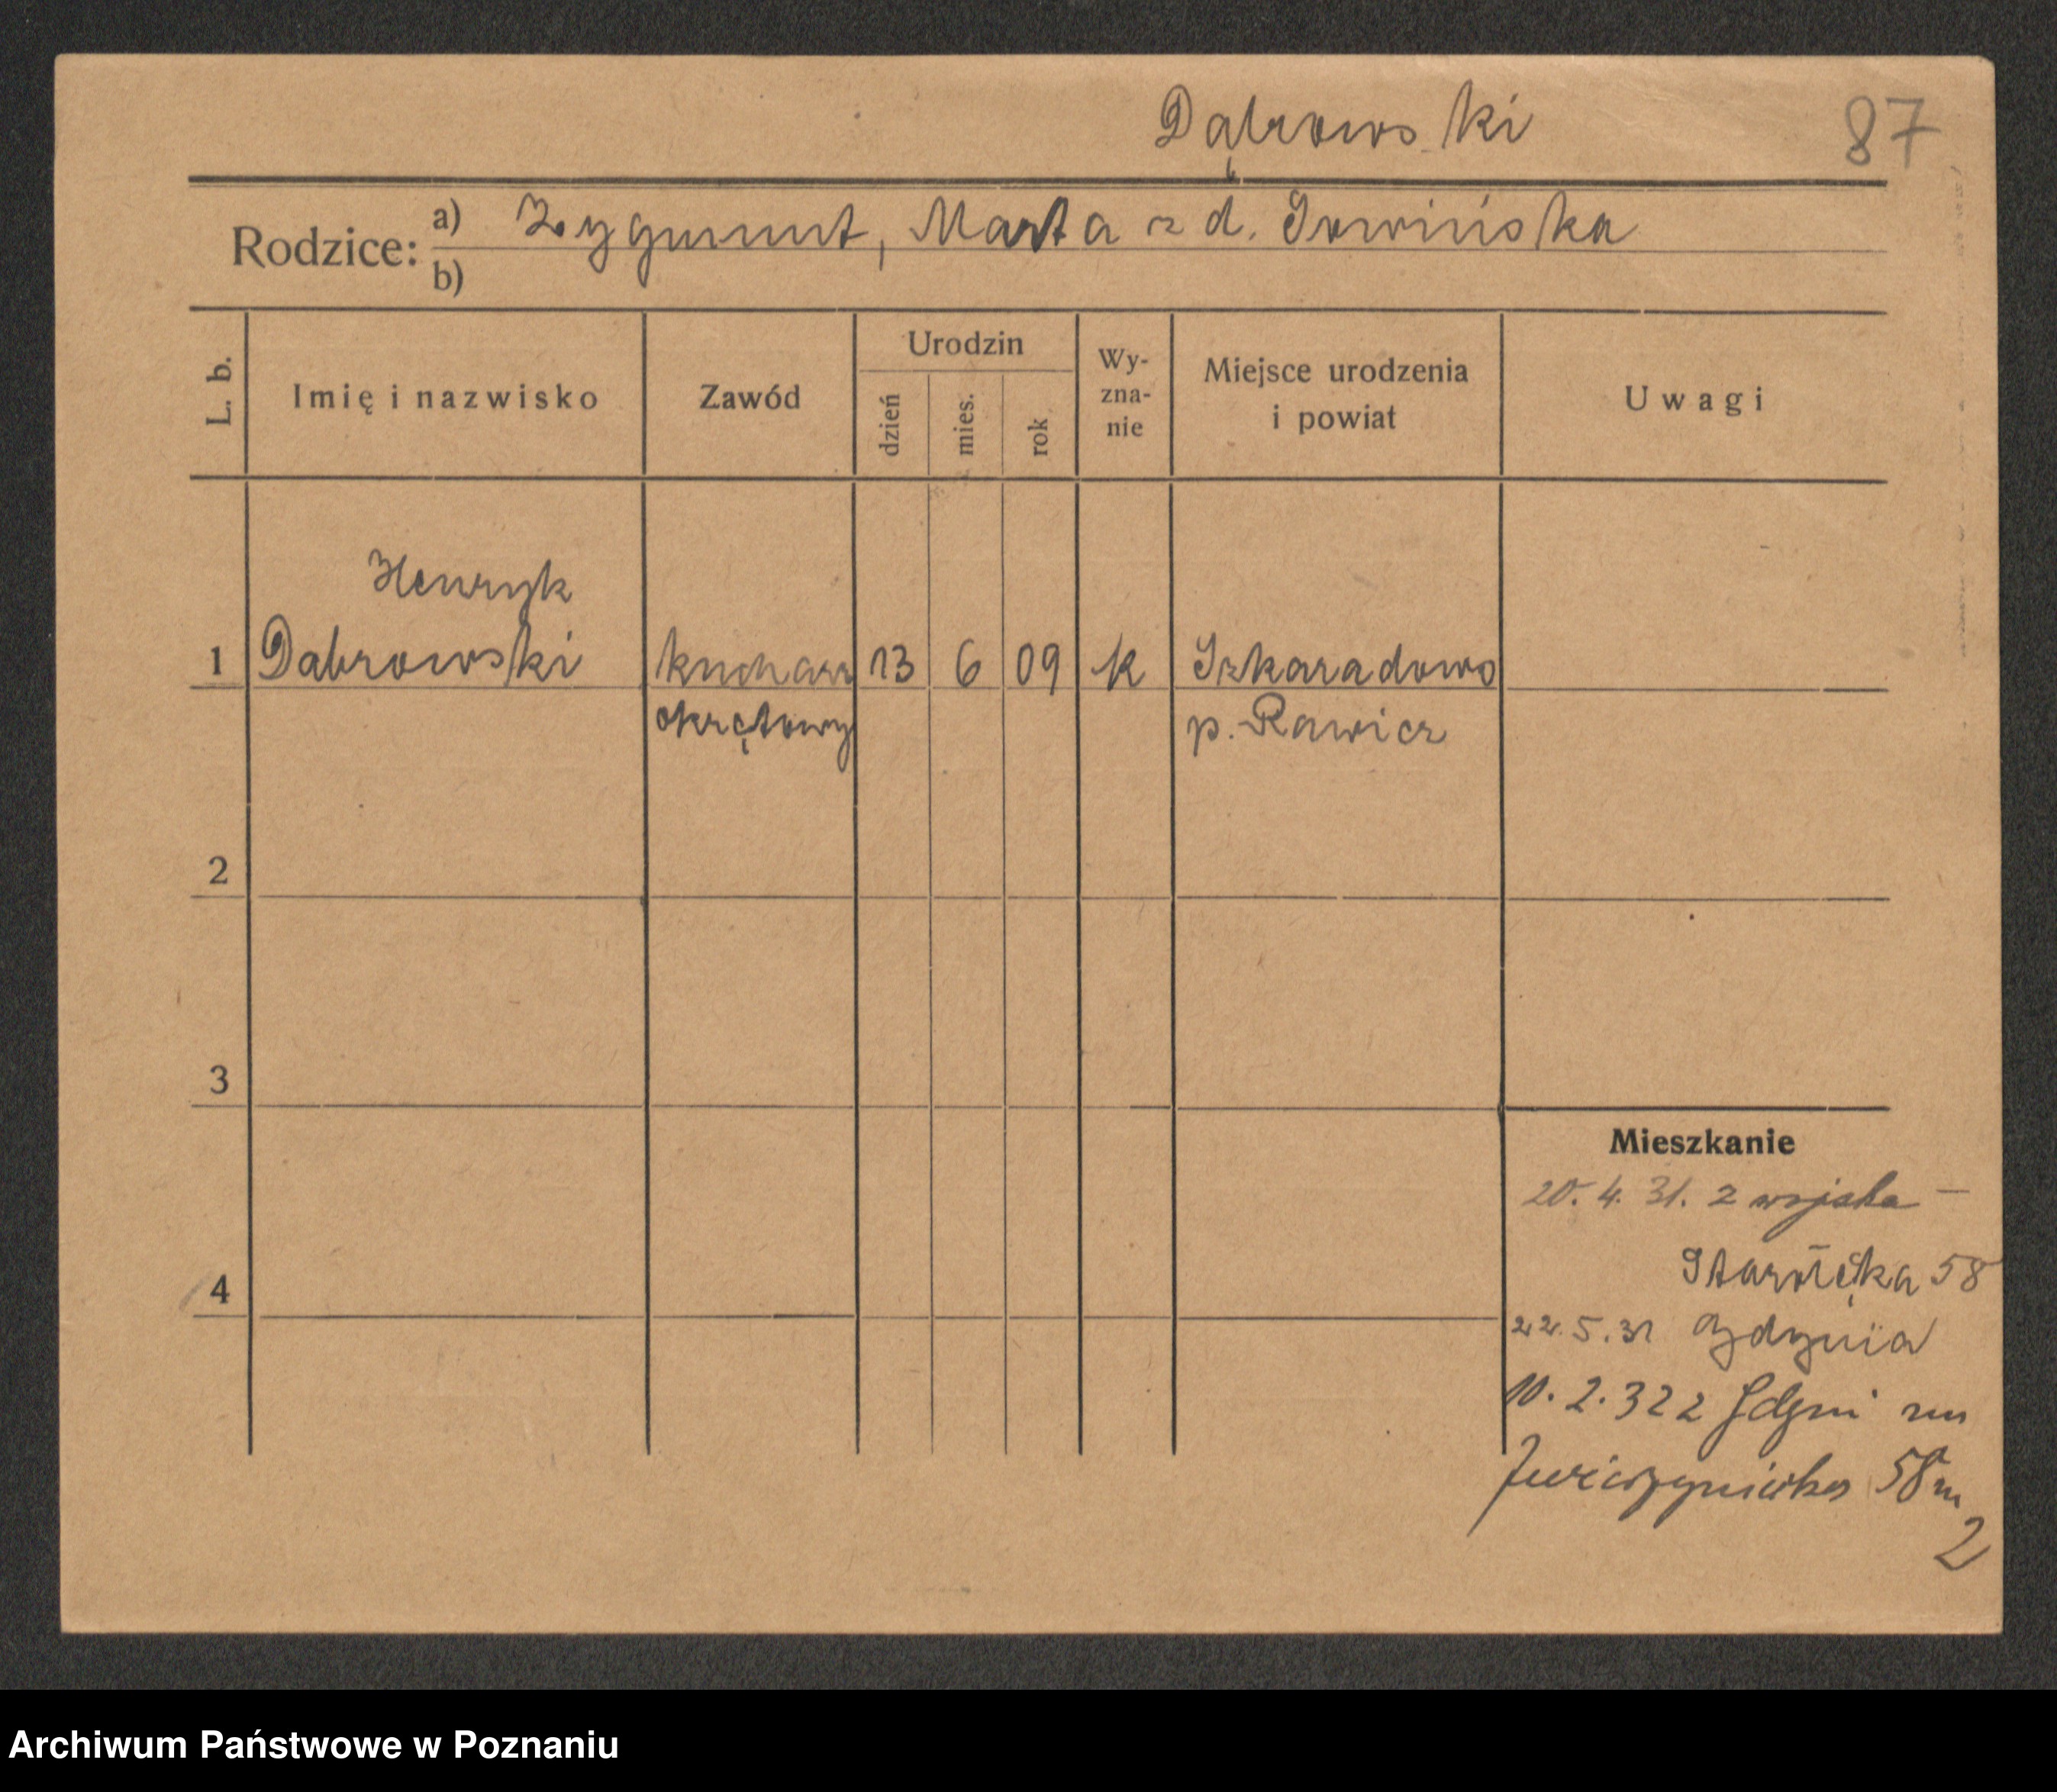 Dąbrowski
87
Rodzice: a) Zygmunt, Marta z d. Sowińska
b)
L. b.
Imię i nazwisko
Zawód
Urodzin
dzień
mies.
rok
Wy-
zna-
nie
Miejsce urodzenia
i powiat
Uwagi
Henryk
1 Dabrowski kucharz 13 6 09 k Szkaradowo
okrętowy p. Rawicz
2
3
Mieszkanie
20. 4. 31. z wojska –
Starołęcka 58
4
22.5.31 Gdynia
10.2.32 z Gdyni
58 m
2
Archiwum Państwowe w Poznaniu